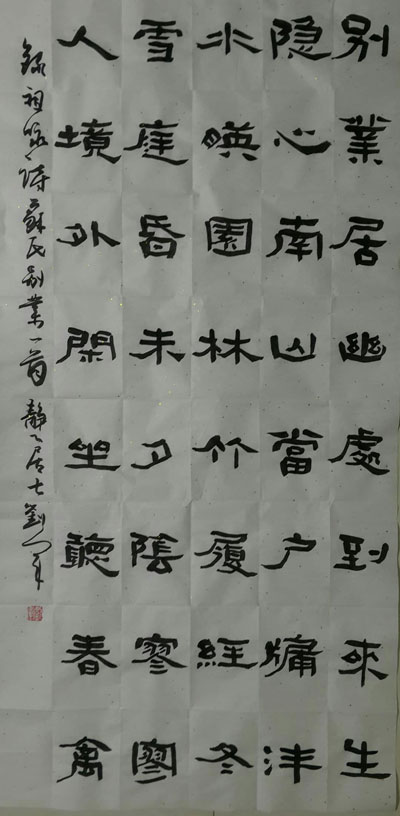 别業居幽處到來生
隐心南山當户牖沣
水暎園林竹履經冬
雪庭昏未夕陰寥寥
人境外閑坐聽春禽
錄祖咏诗蘇氏别業一首 靜之居士劉